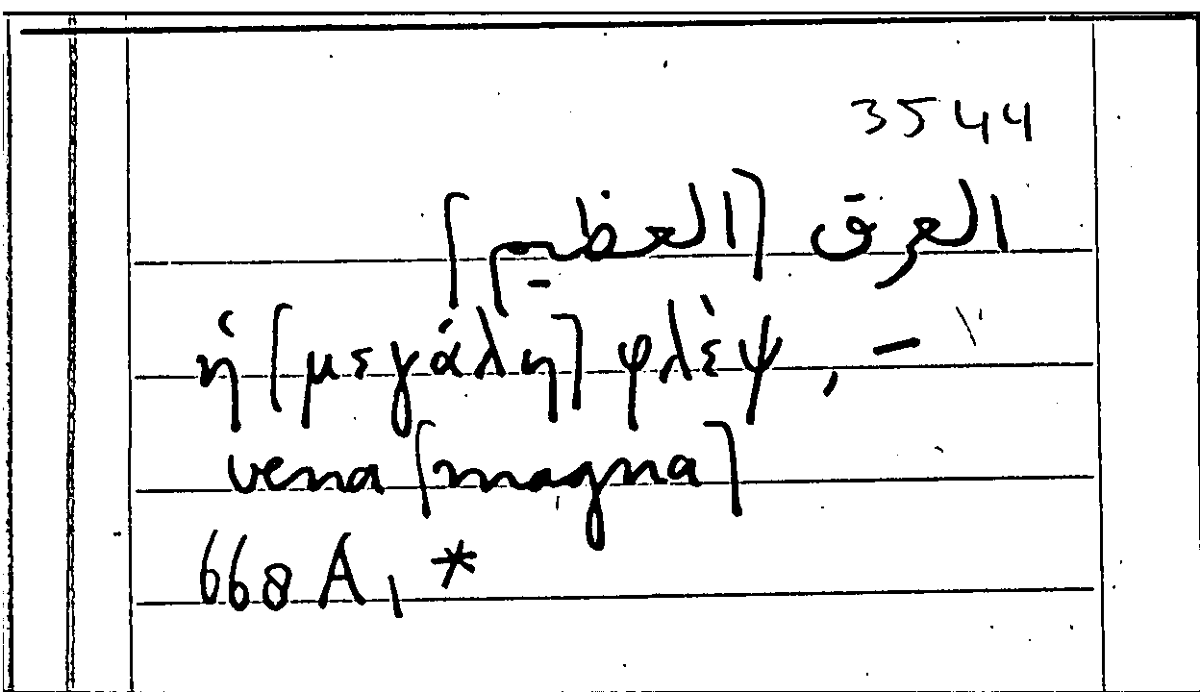 3544
العرق [العظيم]
ἡ [μεγάλη] φλὲψ, –
vena [magna]
668 A, *